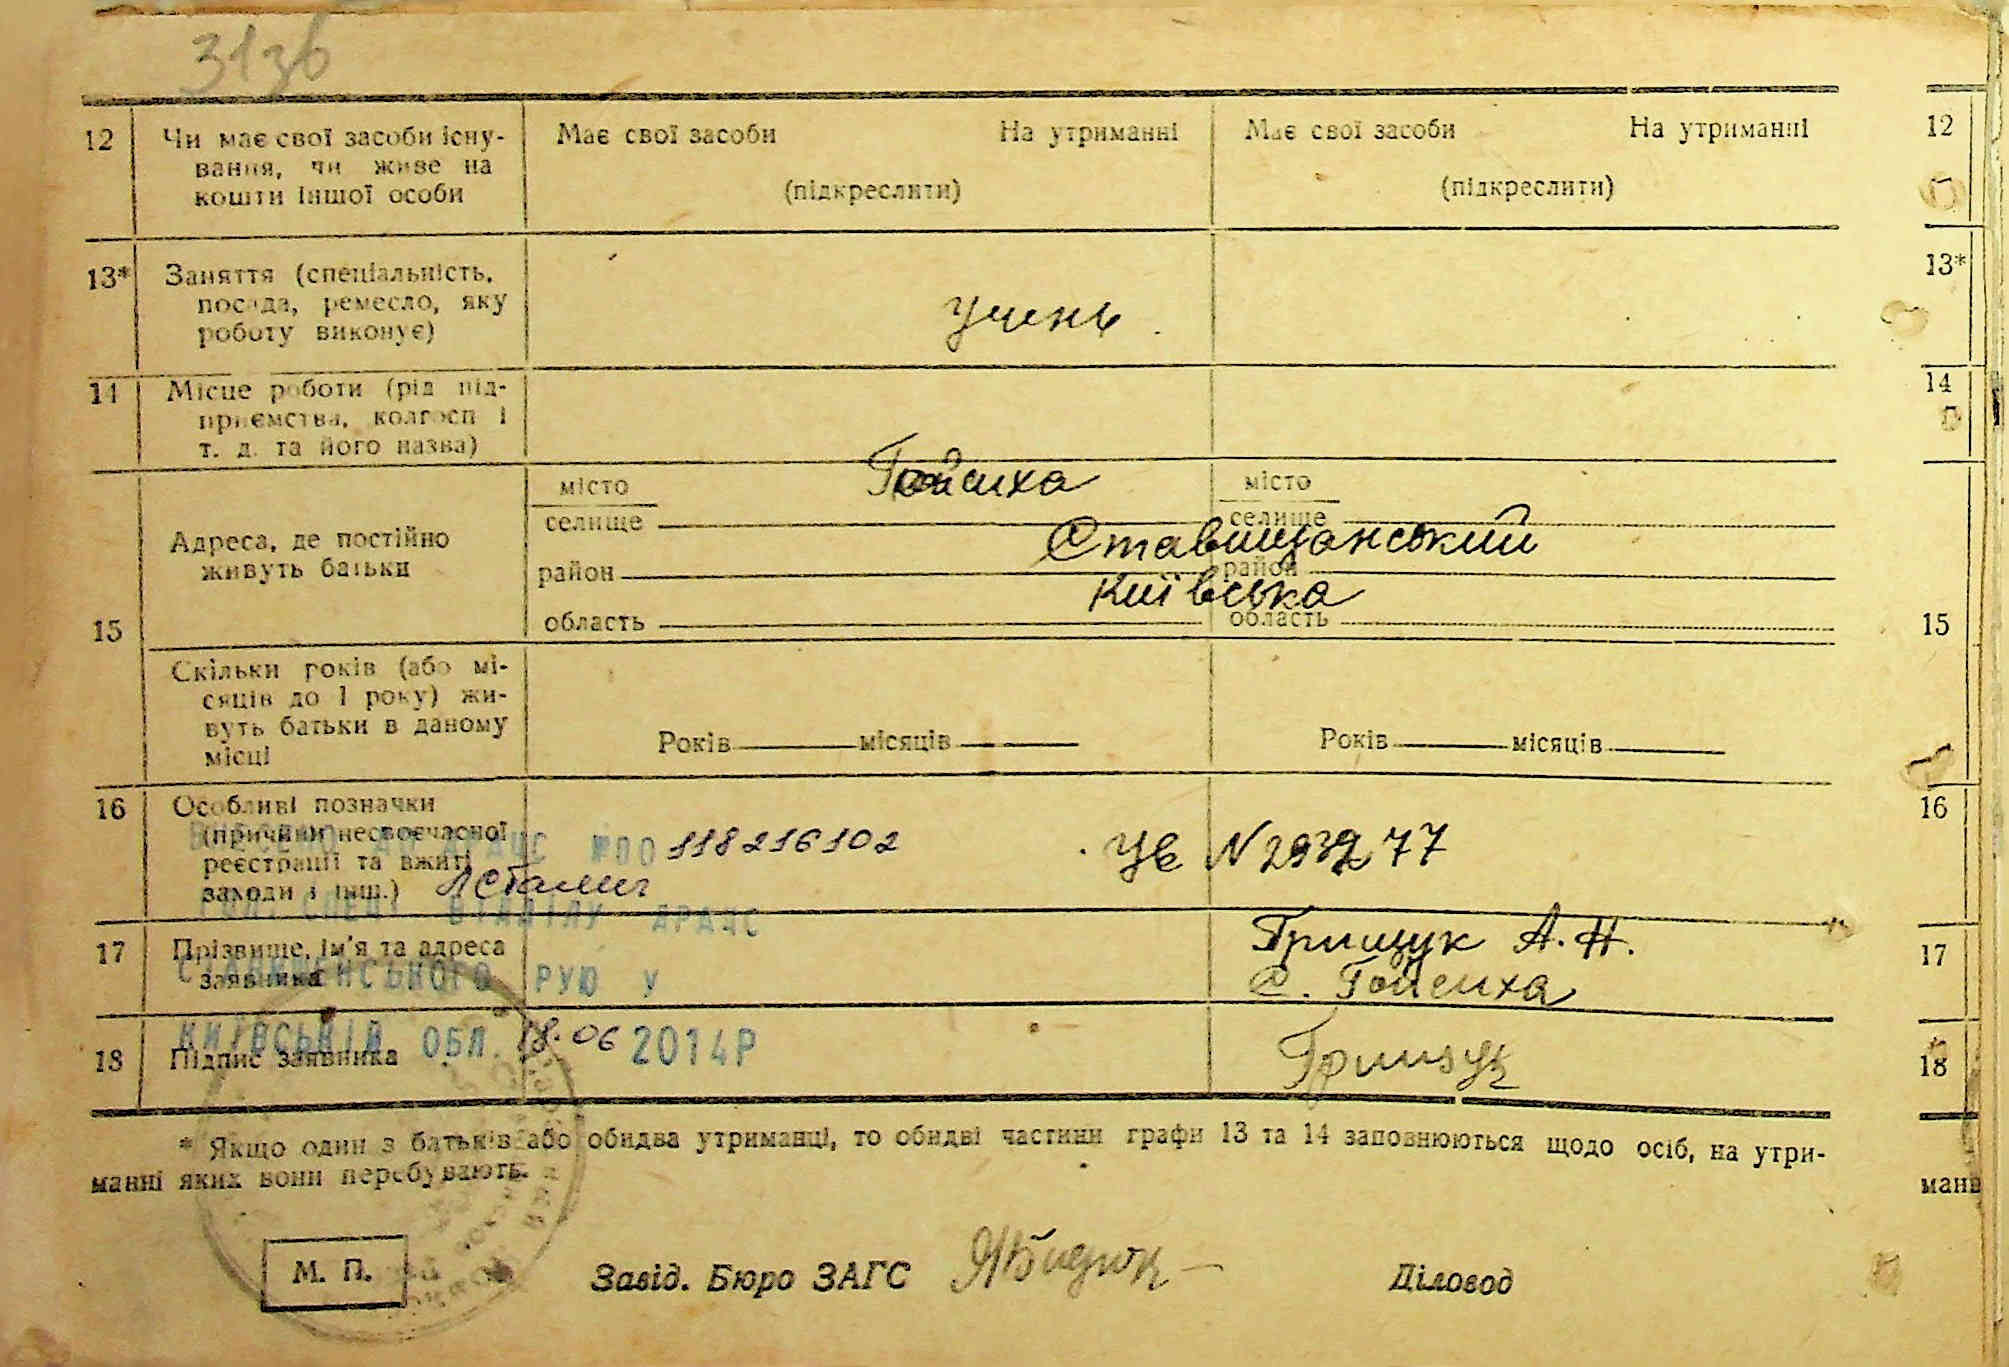 313б
12 Чи має свої засоби існу- Має свої засоби На утриманні Має свої засоби На утриманні 12
вання, чи живе на
кошти іншої особи (підкреслити) (підкреслити)
13* Заняття (спеціальність, 13*
посада, ремесло, яку учень
роботу виконує)
14 Місце роботи (рід під- 14
приємства, колгосп і
т. д. та його назва)
місто Гойсиха місто
селище селище
Адреса, де постійно Ставищанський
живуть батьки район район
Київська
область область
15 15
Скільки років (або мі-
сяців до 1 року) жи-
вуть батьки в даному Років місяців Років місяців
місці
16 Особливі позначки 16
(причини несвоєчасної
реєстрації та вжиті ДРАЦС №00118216102 УЄ N
заходи з інш.)
СПЕЦ ВІДДІЛУ ДРАЦС
17 Прізвище, ім'я та адреса Грищук А. Н. 17
заявника с. Гойсиха
РУЮ У
КИЇВСЬКІЙ ОБЛ. 18.06 2014Р
18 Підпис заявника Грищук 18
* Якщо один з батьків або обидва утриманці, то обидві частини графи 13 та 14 заповнюються щодо осіб, на утри-
манні яких вони перебувають. ман
М. П. Завід. Бюро ЗАГС Діловод